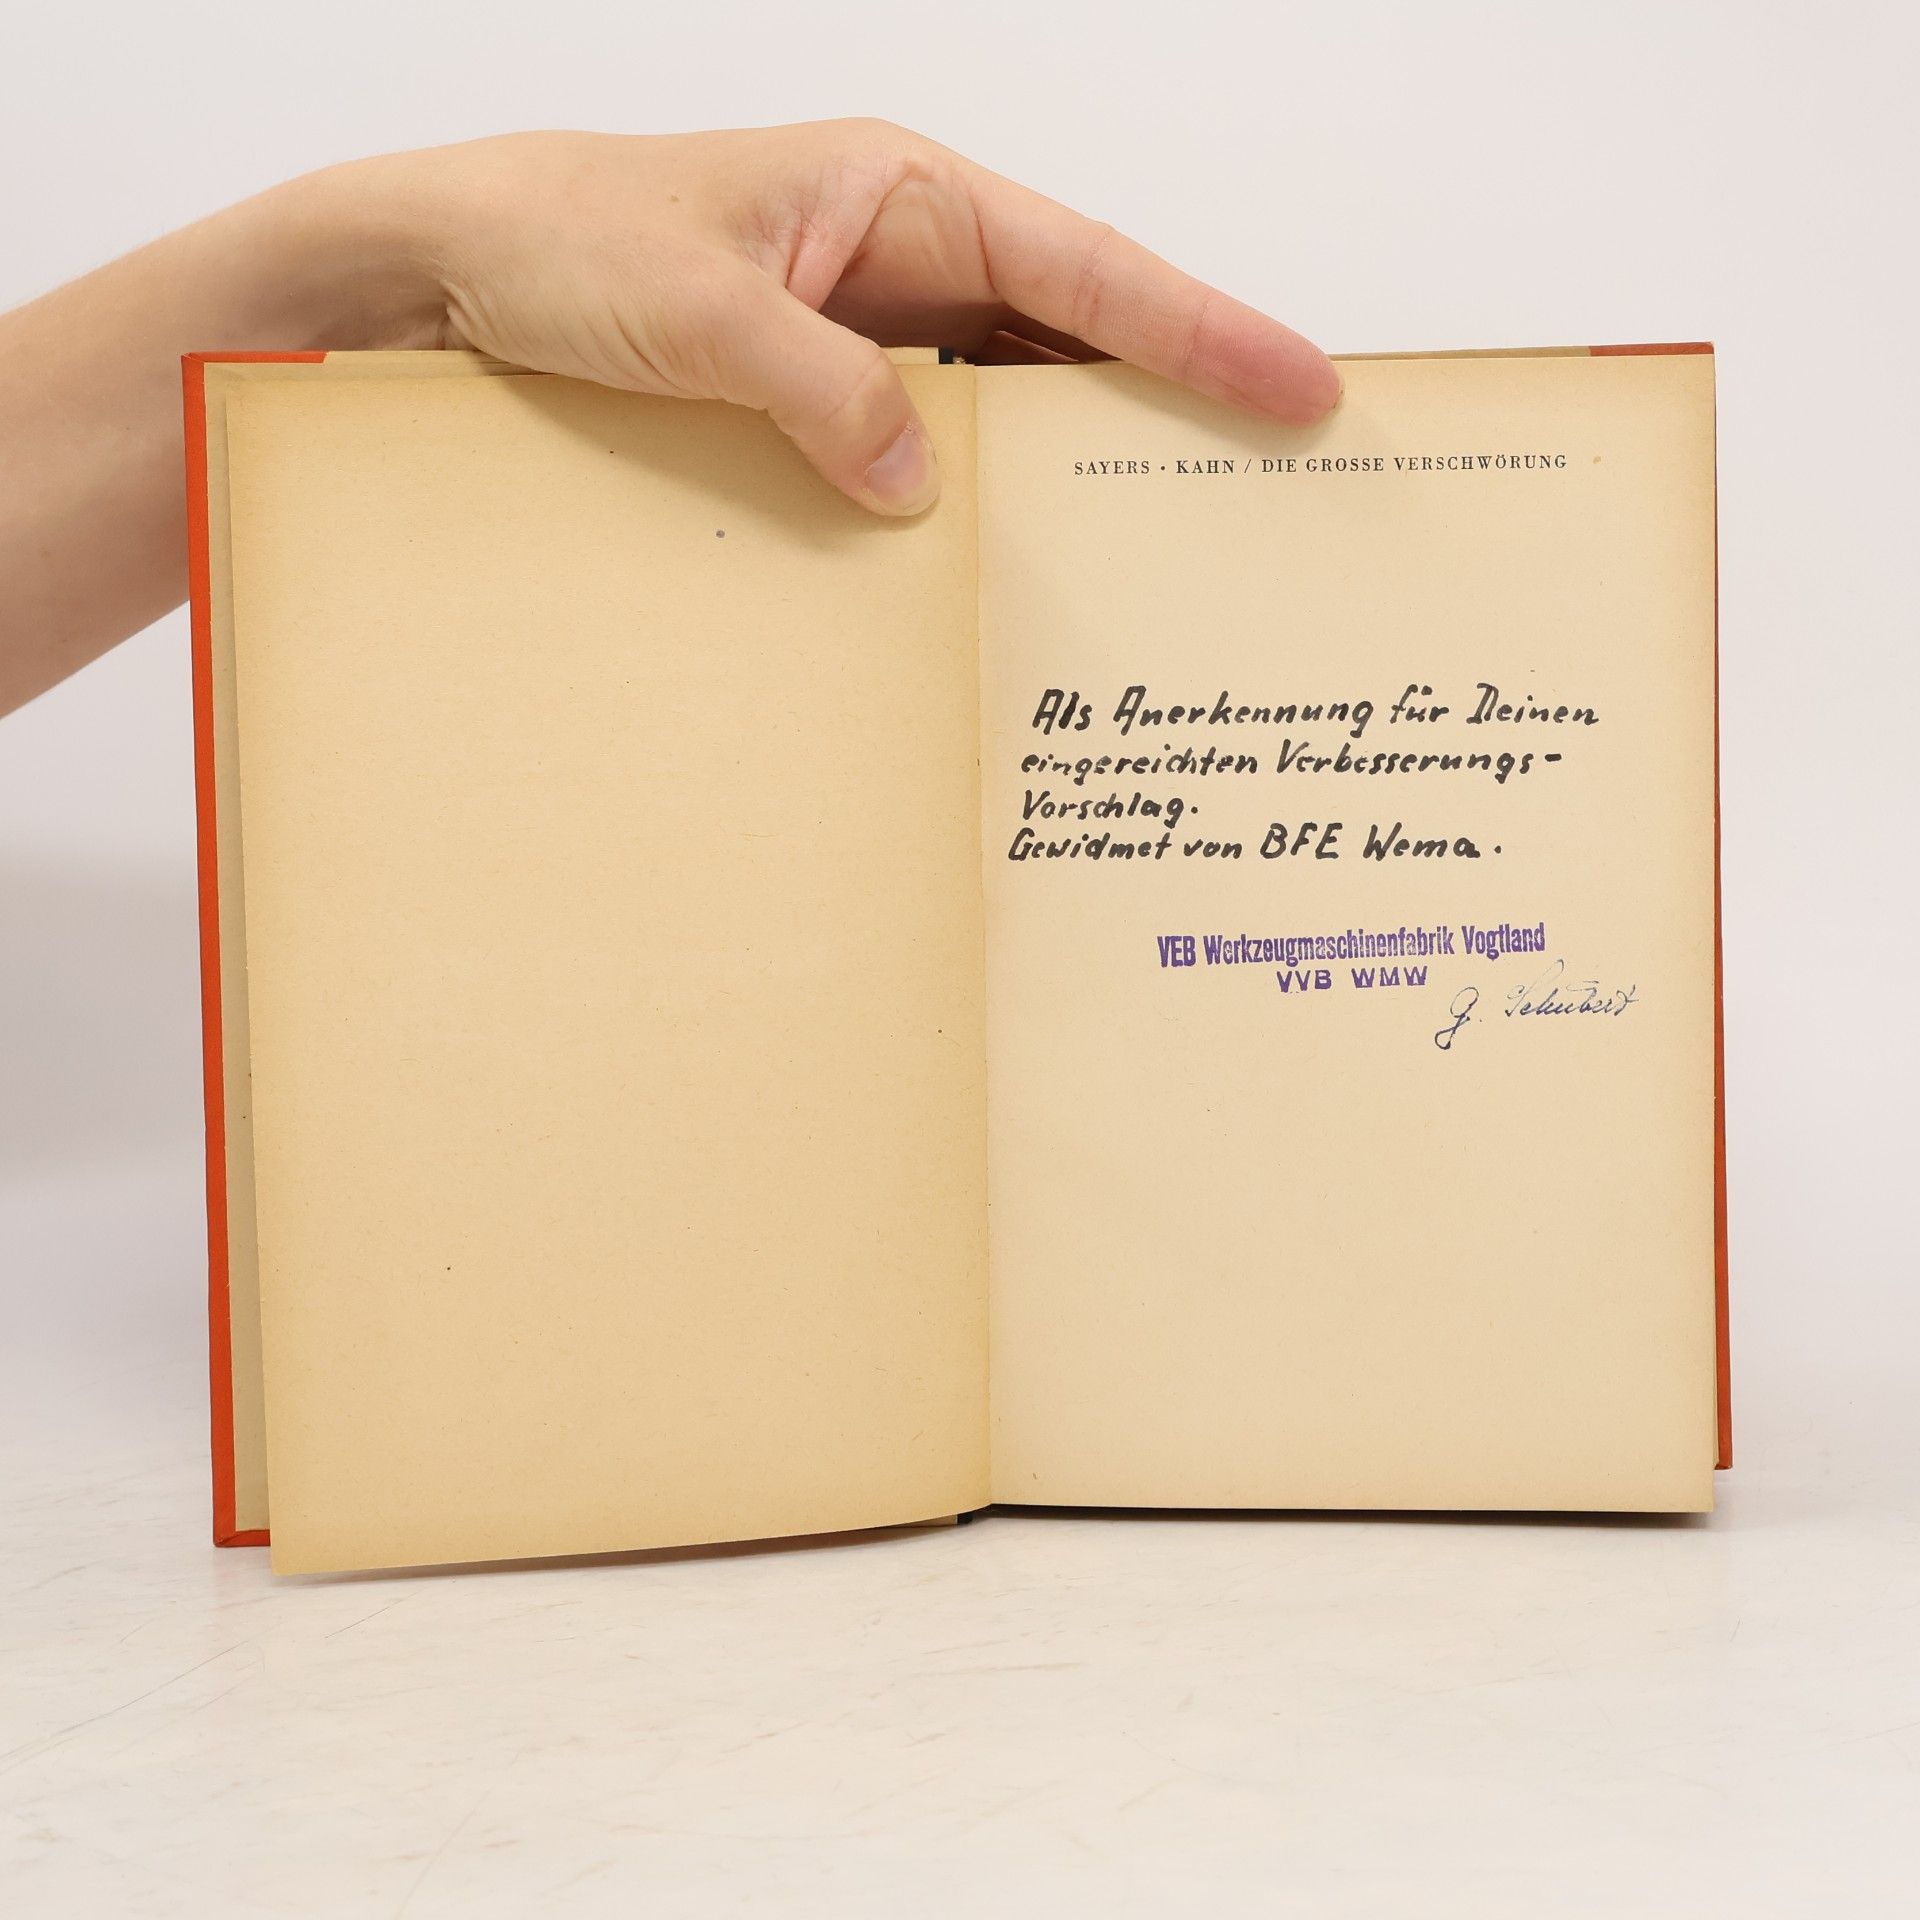 SAYERS · KAHN / DIE GROSSE VERSCHWÖRUNG
Als Anerkennung für Deinen
eingereichten Verbesserungs-
Vorschlag.
Gewidmet von BFE Wema.
VEB Werkzeugmaschinenfabrik Vogtland
VVB WMW
G. Schubert